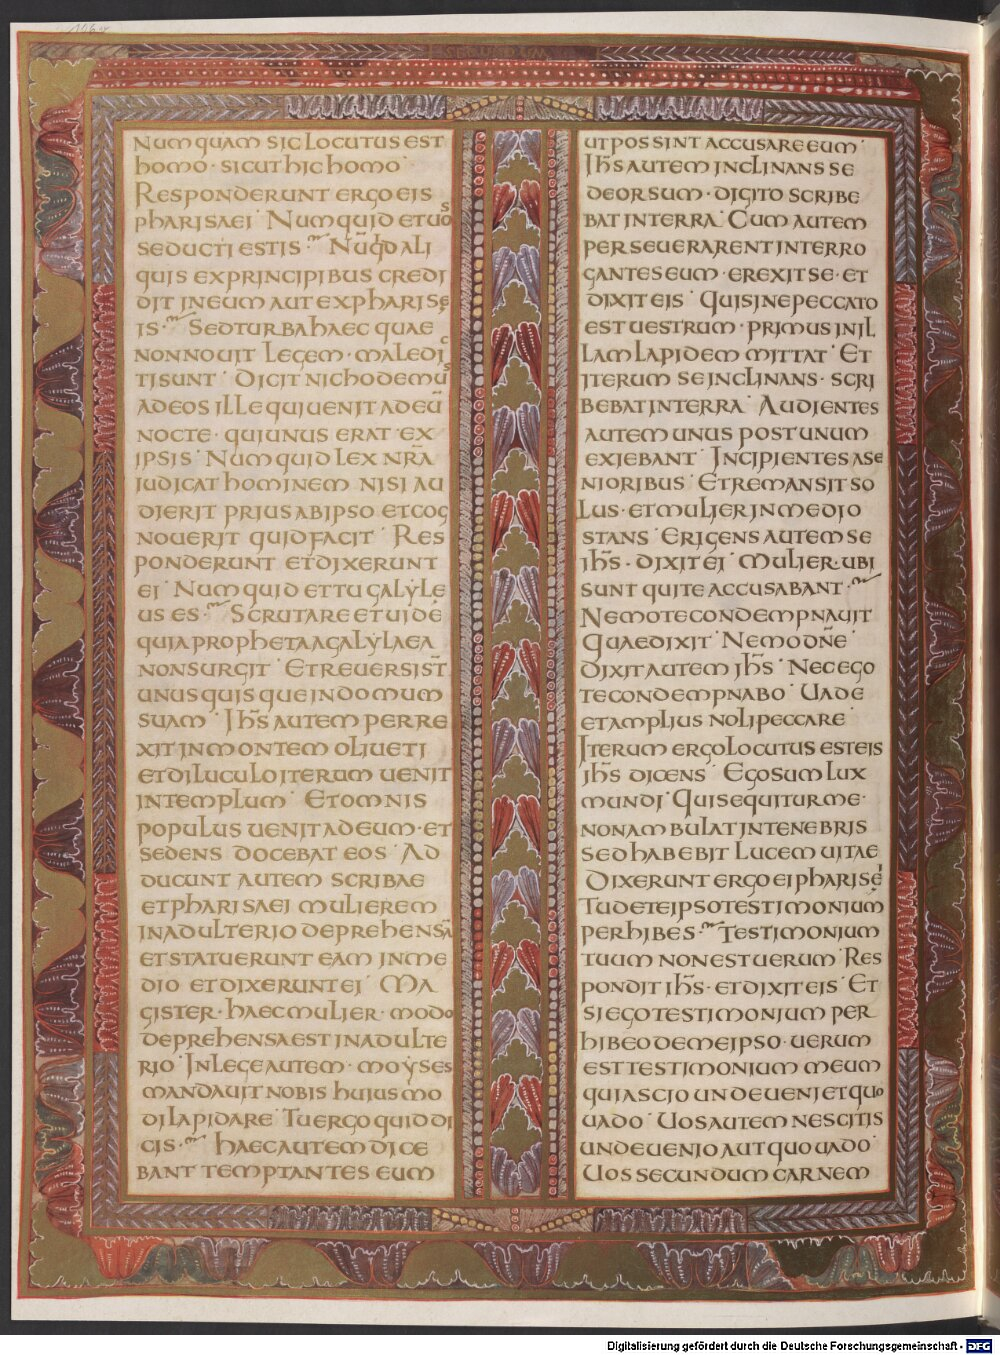 NUMQUAM SIC LOCUTUS EST
HOMO · SICUT HIC HOMO
RESPONDERUNT ERGO EIS
PHARISAEI NUMQUID ET UOS
SEDUCTI ESTIS NŪQD ALI
QUIS EX PRINCIPIBUS CREDI
DIT IN EUM AUT EX PHARISE
IS · SED TURBA HAEC QUAE
NON NOUIT LEGEM · MALEDIC
TI SUNT DICIT NICHODEMUS
AD EOS ILLE QUI UENIT AD EŪ
NOCTE · QUI UNUS ERAT EX
IPSIS NUMQUID LEX NRĀ
IUDICAT HOMINEM NISI AU
DIERIT PRIUS AB IPSO ET COG
NOUERIT QUID FACIT RES
PONDERUNT ET DIXERUNT
EI NUMQUID ET TU GALYLE
US ES · SCRUTARE ET UIDE
QUIA PROPHETA A GALYLAEA
NON SURGIT ET REUERSI ST̄
UNUSQUISQUE IN DOMUM
SUAM IHS̄ AUTEM PERRE
XIT IN MONTEM OLIUETI
ET DILUCULO ITERUM UENIT
IN TEMPLUM ET OMNIS
POPULUS UENIT AD EUM · ET
SEDENS DOCEBAT EOS AD
DUCUNT AUTEM SCRIBAE
ET PHARISAEI MULIEREM
IN ADULTERIO DEPREHENSĀ
ET STATUERUNT EAM IN ME
DIO ET DIXERUNT EI MA
GISTER · HAEC MULIER · MODO
DEPREHENSA EST IN ADULTE
RIO IN LEGE AUTEM · MOYSES
MANDAUIT NOBIS HUIUSMO
DI LAPIDARE TU ERGO QUID DI
CIS · HAEC AUTEM DICE
BANT TEMPTANTES EUM
UT POSSINT ACCUSARE EUM
IHS̄ AUTEM INCLINANS SE
DEORSUM · DIGITO SCRIBE
BAT IN TERRA CUM AUTEM
PERSEUERARENT INTERRO
GANTES EUM · EREXIT SE · ET
DIXIT EIS QUI SINE PECCATO
EST UESTRUM · PRIMUS IN IL
LAM LAPIDEM MITTAT ET
ITERUM SE INCLINANS · SCRI
BEBAT IN TERRA AUDIENTES
AUTEM UNUS POST UNUM
EXIEBANT INCIPIENTES A SE
NIORIBUS ET REMANSIT SO
LUS · ET MULIER IN MEDIO
STANS ERIGENS AUTEM SE
IHS̄ · DIXIT EI MULIER · UBI
SUNT QUI TE ACCUSABANT ·
NEMO TE CONDEMPNAUIT
QUAE DIXIT NEMO DNĒ
DIXIT AUTEM IHS̄ NEC EGO
TE CONDEMPNABO UADE
ET AMPLIUS NOLI PECCARE
ITERUM ERGO LOCUTUS EST EIS
IHS̄ DICENS EGO SUM LUX
MUNDI QUI SEQUITUR ME ·
NON AMBULAT IN TENEBRIS
SED HABEBIT LUCEM UITAE
DIXERUNT ERGO EI PHARISEI
TU DE TE IPSO TESTIMONIUM
PERHIBES · TESTIMONIUM
TUUM NON EST UERUM RES
PONDIT IHS̄ · ET DIXIT EIS ET
SI EGO TESTIMONIUM PER
HIBEO DE ME IPSO · UERUM
EST TESTIMONIUM MEUM
QUIA SCIO UNDE UENI ET QUO
UADO UOS AUTEM NESCITIS
UNDE UENIO AUT QUO UADO
UOS SECUNDUM CARNEM
Digitalisierung gefördert durch die Deutsche Forschungsgemeinschaft - DFG